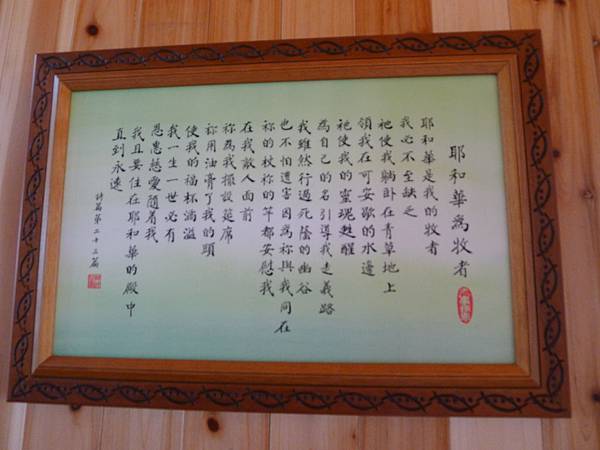 耶和華為牧者
耶和華是我的牧者
我必不至缺乏
祂使我躺卧在青草地上
領我在可安歇的水邊
祂使我的靈魂甦醒
為自己的名引導我走義路
我雖然行過死蔭的幽谷
也不怕遭害因為祢與我同在
祢的杖祢的竿都安慰我
在我敵人面前
祢為我擺設筵席
祢用油膏了我的頭
使我的福杯滿溢
我一生一世必有
恩惠慈愛隨着我
我且要住在耶和華的殿中
直到永遠
詩篇第二十三篇